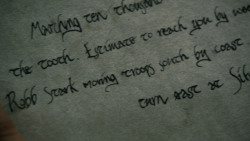 Marching ten thousand
the tooth. Estimate to reach you by
Robb Stark moving troops south by coast
turn east at